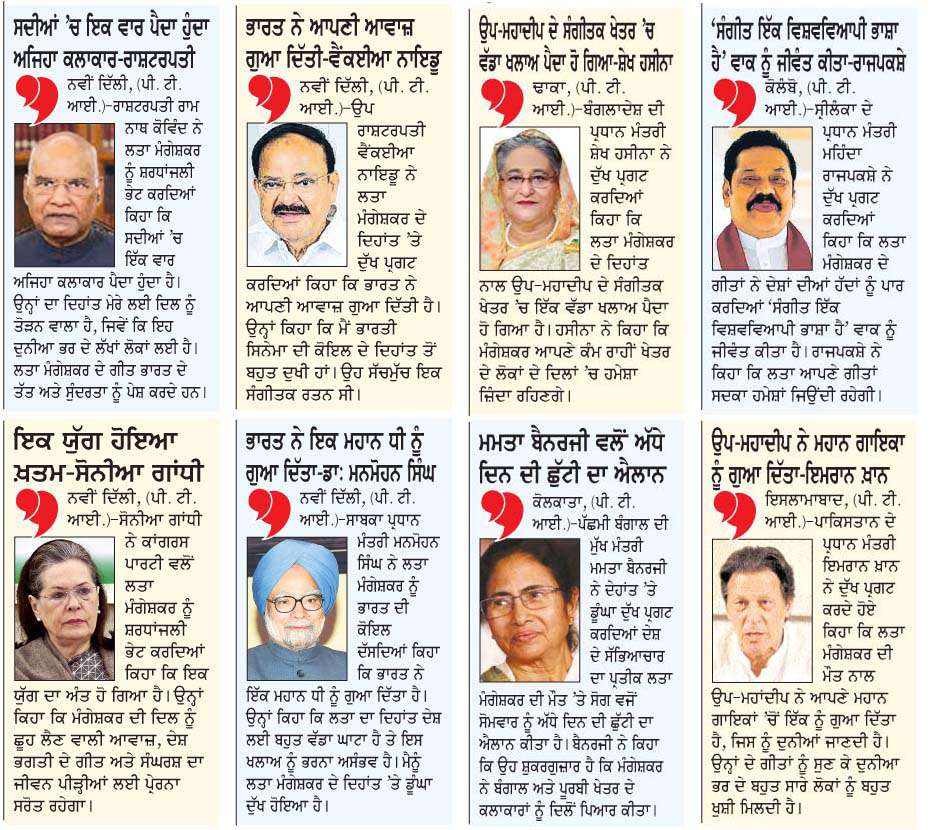 ਸਦੀਆਂ 'ਚ ਇਕ ਵਾਰ ਪੈਦਾ ਹੁੰਦਾ
ਅਜਿਹਾ ਕਲਾਕਾਰ-ਰਾਸ਼ਟਰਪਤੀ
ਨਵੀਂ ਦਿੱਲੀ, (ਪੀ. ਟੀ.
ਆਈ.)-ਰਾਸ਼ਟਰਪਤੀ ਰਾਮ
ਨਾਥ ਕੋਵਿੰਦ ਨੇ
ਲਤਾ ਮੰਗੇਸ਼ਕਰ
ਨੂੰ ਸ਼ਰਧਾਂਜਲੀ
ਭੇਟ ਕਰਦਿਆਂ
ਕਿਹਾ ਕਿ
ਸਦੀਆਂ 'ਚ
ਇੱਕ ਵਾਰ
ਅਜਿਹਾ ਕਲਾਕਾਰ ਪੈਦਾ ਹੁੰਦਾ ਹੈ।
ਉਨ੍ਹਾਂ ਦਾ ਦਿਹਾਂਤ ਮੇਰੇ ਲਈ ਦਿਲ ਨੂੰ
ਤੋੜਨ ਵਾਲਾ ਹੈ, ਜਿਵੇਂ ਕਿ ਇਹ
ਦੁਨੀਆ ਭਰ ਦੇ ਲੱਖਾਂ ਲੋਕਾਂ ਲਈ ਹੈ।
ਲਤਾ ਮੰਗੇਸ਼ਕਰ ਦੇ ਗੀਤ ਭਾਰਤ ਦੇ
ਤੱਤ ਅਤੇ ਸੁੰਦਰਤਾ ਨੂੰ ਪੇਸ਼ ਕਰਦੇ ਹਨ।
ਭਾਰਤ ਨੇ ਆਪਣੀ ਆਵਾਜ਼
ਗੁਆ ਦਿੱਤੀ-ਵੈਂਕਈਆ ਨਾਇਡੂ
ਨਵੀਂ ਦਿੱਲੀ, (ਪੀ. ਟੀ.
ਆਈ.)-ਉਪ
ਰਾਸ਼ਟਰਪਤੀ
ਵੈਂਕਈਆ
ਨਾਇਡੂ ਨੇ
ਲਤਾ
ਮੰਗੇਸ਼ਕਰ ਦੇ
ਦਿਹਾਂਤ 'ਤੇ
ਦੁੱਖ ਪ੍ਰਗਟ
ਕਰਦਿਆਂ ਕਿਹਾ ਕਿ ਭਾਰਤ ਨੇ
ਆਪਣੀ ਆਵਾਜ਼ ਗੁਆ ਦਿੱਤੀ ਹੈ।
ਉਨ੍ਹਾਂ ਕਿਹਾ ਕਿ ਮੈਂ ਭਾਰਤੀ
ਸਿਨੇਮਾ ਦੀ ਕੋਇਲ ਦੇ ਦਿਹਾਂਤ ਤੋਂ
ਬਹੁਤ ਦੁਖੀ ਹਾਂ। ਉਹ ਸੱਚਮੁੱਚ ਇਕ
ਸੰਗੀਤਕ ਰਤਨ ਸੀ।
ਉਪ-ਮਹਾਦੀਪ ਦੇ ਸੰਗੀਤਕ ਖੇਤਰ 'ਚ
ਵੱਡਾ ਖਲਾਅ ਪੈਦਾ ਹੋ ਗਿਆ-ਸ਼ੇਖ ਹਸੀਨਾ
ਢਾਕਾ, (ਪੀ. ਟੀ.
ਆਈ.)-ਬੰਗਲਾਦੇਸ਼ ਦੀ
ਪ੍ਰਧਾਨ ਮੰਤਰੀ
ਸ਼ੇਖ ਹਸੀਨਾ ਨੇ
ਦੁੱਖ ਪ੍ਰਗਟ
ਕਰਦਿਆਂ
ਕਿਹਾ ਕਿ
ਲਤਾ ਮੰਗੇਸ਼ਕਰ
ਦੇ ਦਿਹਾਂਤ
ਨਾਲ ਉਪ-ਮਹਾਦੀਪ ਦੇ ਸੰਗੀਤਕ
ਖੇਤਰ 'ਚ ਇੱਕ ਵੱਡਾ ਖਲਾਅ ਪੈਦਾ
ਹੋ ਗਿਆ ਹੈ। ਹਸੀਨਾ ਨੇ ਕਿਹਾ ਕਿ
ਮੰਗੇਸ਼ਕਰ ਆਪਣੇ ਕੰਮ ਰਾਹੀਂ ਖੇਤਰ
ਦੇ ਲੋਕਾਂ ਦੇ ਦਿਲਾਂ 'ਚ ਹਮੇਸ਼ਾ
ਜ਼ਿੰਦਾ ਰਹਿਣਗੇ।
'ਸੰਗੀਤ ਇੱਕ ਵਿਸ਼ਵਵਿਆਪੀ ਭਾਸ਼ਾ
ਹੈ' ਵਾਕ ਨੂੰ ਜੀਵੰਤ ਕੀਤਾ-ਰਾਜਪਕਸ਼ੇ
ਕੋਲੰਬੋ, (ਪੀ. ਟੀ.
ਆਈ.)-ਸ੍ਰੀਲੰਕਾ ਦੇ
ਪ੍ਰਧਾਨ ਮੰਤਰੀ
ਮਹਿੰਦਾ
ਰਾਜਪਕਸ਼ੇ ਨੇ
ਦੁੱਖ ਪ੍ਰਗਟ
ਕਰਦਿਆਂ
ਕਿਹਾ ਕਿ ਲਤਾ
ਮੰਗੇਸ਼ਕਰ ਦੇ
ਗੀਤਾਂ ਨੇ ਦੇਸ਼ਾਂ ਦੀਆਂ ਹੱਦਾਂ ਨੂੰ ਪਾਰ
ਕਰਦਿਆਂ 'ਸੰਗੀਤ ਇੱਕ
ਵਿਸ਼ਵਵਿਆਪੀ ਭਾਸ਼ਾ ਹੈ' ਵਾਕ ਨੂੰ
ਜੀਵੰਤ ਕੀਤਾ ਹੈ। ਰਾਜਪਕਸ਼ੇ ਨੇ
ਕਿਹਾ ਕਿ ਲਤਾ ਆਪਣੇ ਗੀਤਾਂ
ਸਦਕਾ ਹਮੇਸ਼ਾਂ ਜਿਉਂਦੀ ਰਹੇਗੀ।
ਇਕ ਯੁੱਗ ਹੋਇਆ
ਖ਼ਤਮ-ਸੋਨੀਆ ਗਾਂਧੀ
ਨਵੀਂ ਦਿੱਲੀ, (ਪੀ. ਟੀ.
ਆਈ.)-ਸੋਨੀਆ ਗਾਂਧੀ
ਨੇ ਕਾਂਗਰਸ
ਪਾਰਟੀ ਵਲੋਂ
ਲਤਾ
ਮੰਗੇਸ਼ਕਰ ਨੂੰ
ਸ਼ਰਧਾਂਜਲੀ
ਭੇਟ ਕਰਦਿਆਂ
ਕਿਹਾ ਕਿ ਇਕ
ਯੁੱਗ ਦਾ ਅੰਤ ਹੋ ਗਿਆ ਹੈ। ਉਨ੍ਹਾਂ
ਕਿਹਾ ਕਿ ਮੰਗੇਸ਼ਕਰ ਦੀ ਦਿਲ ਨੂੰ
ਛੂਹ ਲੈਣ ਵਾਲੀ ਆਵਾਜ਼, ਦੇਸ਼
ਭਗਤੀ ਦੇ ਗੀਤ ਅਤੇ ਸੰਘਰਸ਼ ਦਾ
ਜੀਵਨ ਪੀੜ੍ਹੀਆਂ ਲਈ ਪ੍ਰੇਰਨਾ
ਸਰੋਤ ਰਹੇਗਾ।
ਭਾਰਤ ਨੇ ਇਕ ਮਹਾਨ ਧੀ ਨੂੰ
ਗੁਆ ਦਿੱਤਾ-ਡਾ: ਮਨਮੋਹਨ ਸਿੰਘ
ਨਵੀਂ ਦਿੱਲੀ, (ਪੀ. ਟੀ.
ਆਈ.)-ਸਾਬਕਾ ਪ੍ਰਧਾਨ
ਮੰਤਰੀ ਮਨਮੋਹਨ
ਸਿੰਘ ਨੇ ਲਤਾ
ਮੰਗੇਸ਼ਕਰ ਨੂੰ
ਭਾਰਤ ਦੀ
ਕੋਇਲ
ਦੱਸਦਿਆਂ ਕਿਹਾ
ਕਿ ਭਾਰਤ ਨੇ
ਇੱਕ ਮਹਾਨ ਧੀ ਨੂੰ ਗੁਆ ਦਿੱਤਾ ਹੈ।
ਉਨ੍ਹਾਂ ਕਿਹਾ ਕਿ ਲਤਾ ਦਾ ਦਿਹਾਂਤ ਦੇਸ਼
ਲਈ ਬਹੁਤ ਵੱਡਾ ਘਾਟਾ ਹੈ ਤੇ ਇਸ
ਖਲਾਅ ਨੂੰ ਭਰਨਾ ਅਸੰਭਵ ਹੈ। ਮੈਨੂੰ
ਲਤਾ ਮੰਗੇਸ਼ਕਰ ਦੇ ਦਿਹਾਂਤ 'ਤੇ ਡੂੰਘਾ
ਦੁੱਖ ਹੋਇਆ ਹੈ।
ਮਮਤਾ ਬੈਨਰਜੀ ਵਲੋਂ ਅੱਧੇ
ਦਿਨ ਦੀ ਛੁੱਟੀ ਦਾ ਐਲਾਨ
ਕੋਲਕਾਤਾ, (ਪੀ. ਟੀ.
ਆਈ.)-ਪੱਛਮੀ ਬੰਗਾਲ ਦੀ
ਮੁੱਖ ਮੰਤਰੀ
ਮਮਤਾ ਬੈਨਰਜੀ
ਨੇ ਦੇਹਾਂਤ 'ਤੇ
ਡੂੰਘਾ ਦੁੱਖ ਪ੍ਰਗਟ
ਕਰਦਿਆਂ ਦੇਸ਼
ਦੇ ਸੱਭਿਆਚਾਰ
ਦਾ ਪ੍ਰਤੀਕ ਲਤਾ
ਮੰਗੇਸ਼ਕਰ ਦੀ ਮੌਤ 'ਤੇ ਸੋਗ ਵਜੋਂ
ਸੋਮਵਾਰ ਨੂੰ ਅੱਧੇ ਦਿਨ ਦੀ ਛੁੱਟੀ ਦਾ
ਐਲਾਨ ਕੀਤਾ ਹੈ। ਬੈਨਰਜੀ ਨੇ ਕਿਹਾ
ਕਿ ਉਹ ਸ਼ੁਕਰਗੁਜ਼ਾਰ ਹੈ ਕਿ ਮੰਗੇਸ਼ਕਰ
ਨੇ ਬੰਗਾਲ ਅਤੇ ਪੂਰਬੀ ਖੇਤਰ ਦੇ
ਕਲਾਕਾਰਾਂ ਨੂੰ ਦਿਲੋਂ ਪਿਆਰ ਕੀਤਾ।
ਉਪ-ਮਹਾਦੀਪ ਨੇ ਮਹਾਨ ਗਾਇਕਾ
ਨੂੰ ਗੁਆ ਦਿੱਤਾ-ਇਮਰਾਨ ਖ਼ਾਨ
ਇਸਲਾਮਾਬਾਦ, (ਪੀ. ਟੀ.
ਆਈ.)-ਪਾਕਿਸਤਾਨ ਦੇ
ਪ੍ਰਧਾਨ ਮੰਤਰੀ
ਇਮਰਾਨ ਖ਼ਾਨ
ਨੇ ਦੁੱਖ ਪ੍ਰਗਟ
ਕਰਦੇ ਹੋਏ
ਕਿਹਾ ਕਿ ਲਤਾ
ਮੰਗੇਸ਼ਕਰ ਦੀ
ਮੌਤ ਨਾਲ
ਉਪ-ਮਹਾਂਦੀਪ ਨੇ ਆਪਣੇ ਮਹਾਨ
ਗਾਇਕਾਂ 'ਚੋਂ ਇੱਕ ਨੂੰ ਗੁਆ ਦਿੱਤਾ
ਹੈ, ਜਿਸ ਨੂੰ ਦੁਨੀਆਂ ਜਾਣਦੀ ਹੈ।
ਉਨ੍ਹਾਂ ਦੇ ਗੀਤਾਂ ਨੂੰ ਸੁਣ ਕੇ ਦੁਨੀਆ
ਭਰ ਦੇ ਬਹੁਤ ਸਾਰੇ ਲੋਕਾਂ ਨੂੰ ਬਹੁਤ
ਖੁਸ਼ੀ ਮਿਲਦੀ ਹੈ।